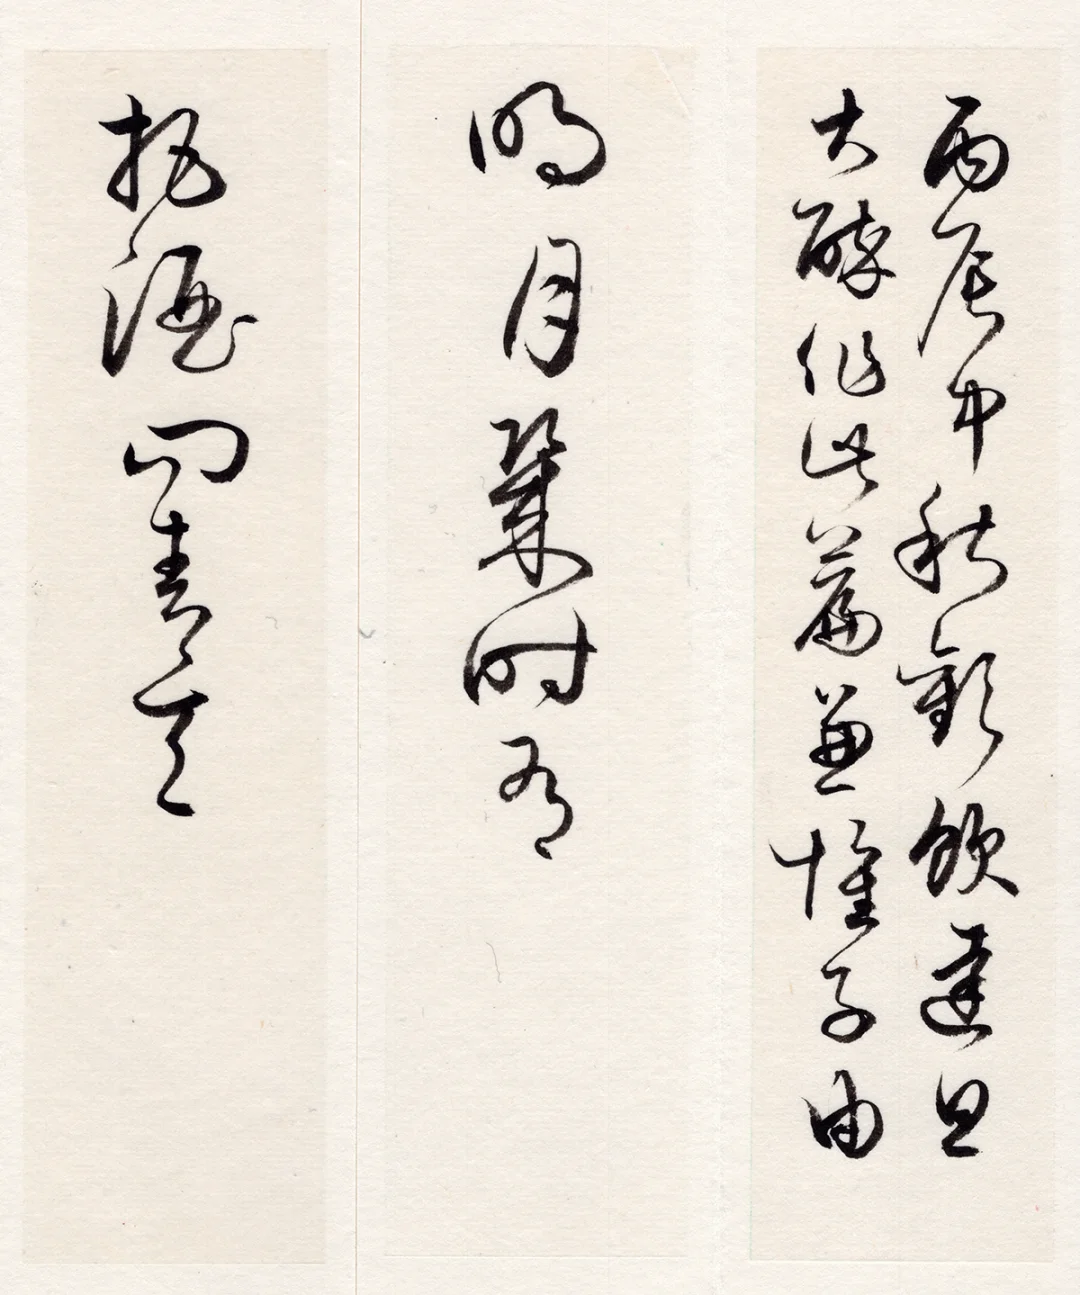 丙辰中秋歡飲達旦
大醉作此篇兼懷子由
明月幾時有
把酒問青天